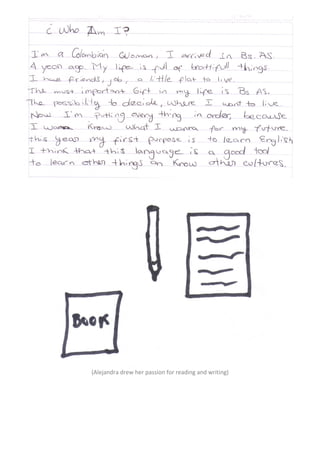 ¿ Who Am I?
I'm a Colombian Woman, I arrived In Bs. AS.
A year ago. My life is full of beatifull things
I have friends, job, a little flat to live.
The most important Gift in my life is Bs As.
The possibility to decide, where I want to live
Now I'm Puting every thing in order, because
I wanna Know what I wanna for my future.
this year my first purpose is to learn English
I think that this language is a good tool
to learn other things an Know other cultures.
BOOK
(Alejandra drew her passion for reading and writing)